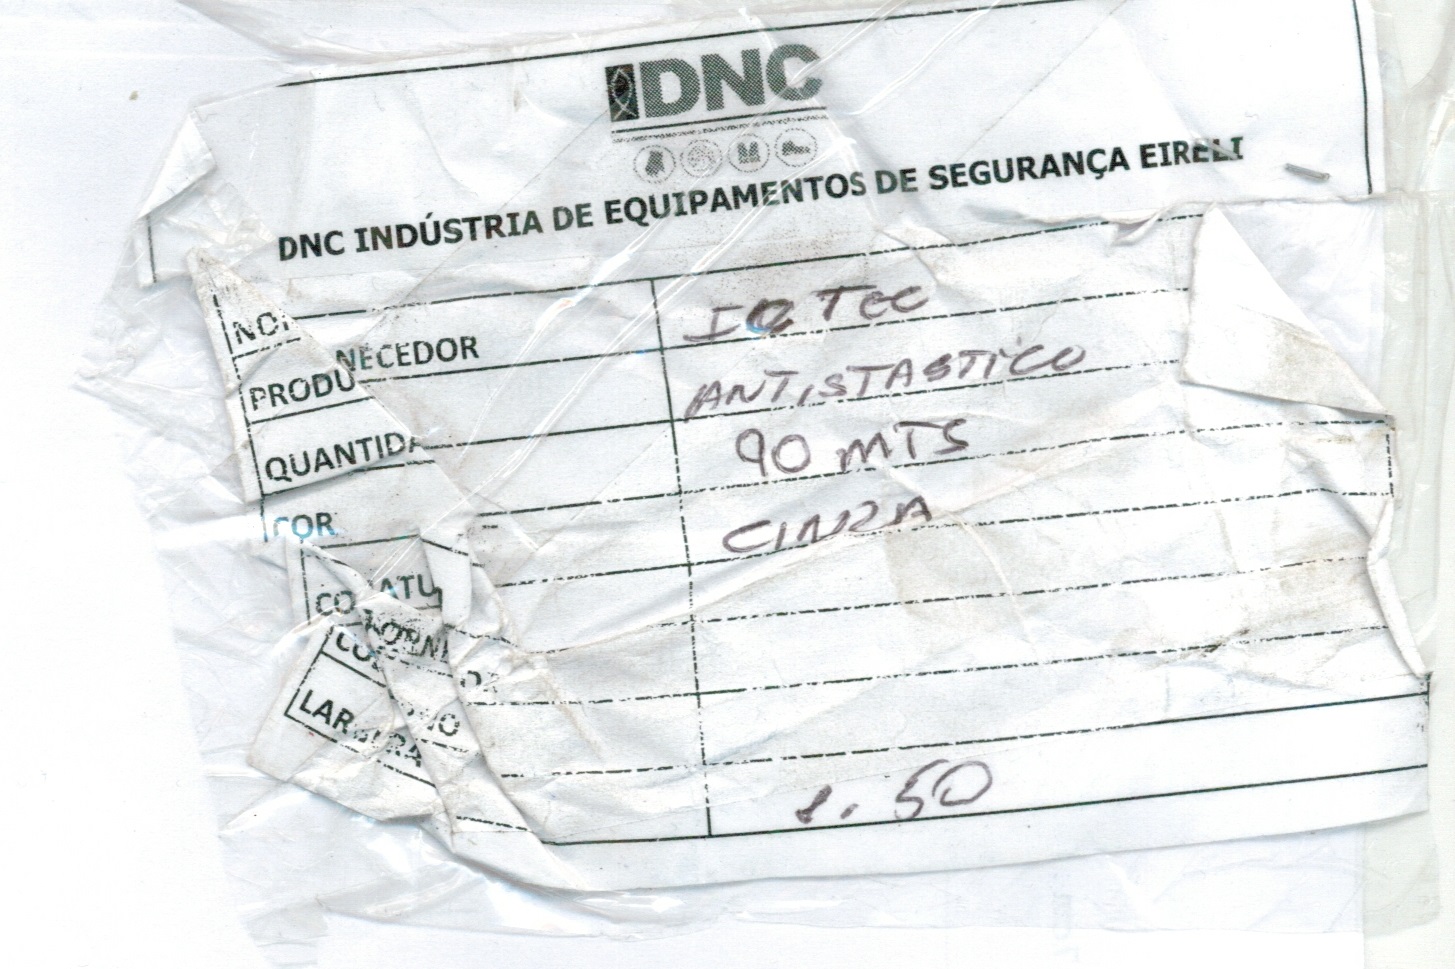 DNC
DNC INDÚSTRIA DE EQUIPAMENTOS DE SEGURANÇA EIRELI
NECEDOR
PRODU ANTISTASTICO
QUANTIDA 90 MTS
COR CINZA
LARGURA 1.50